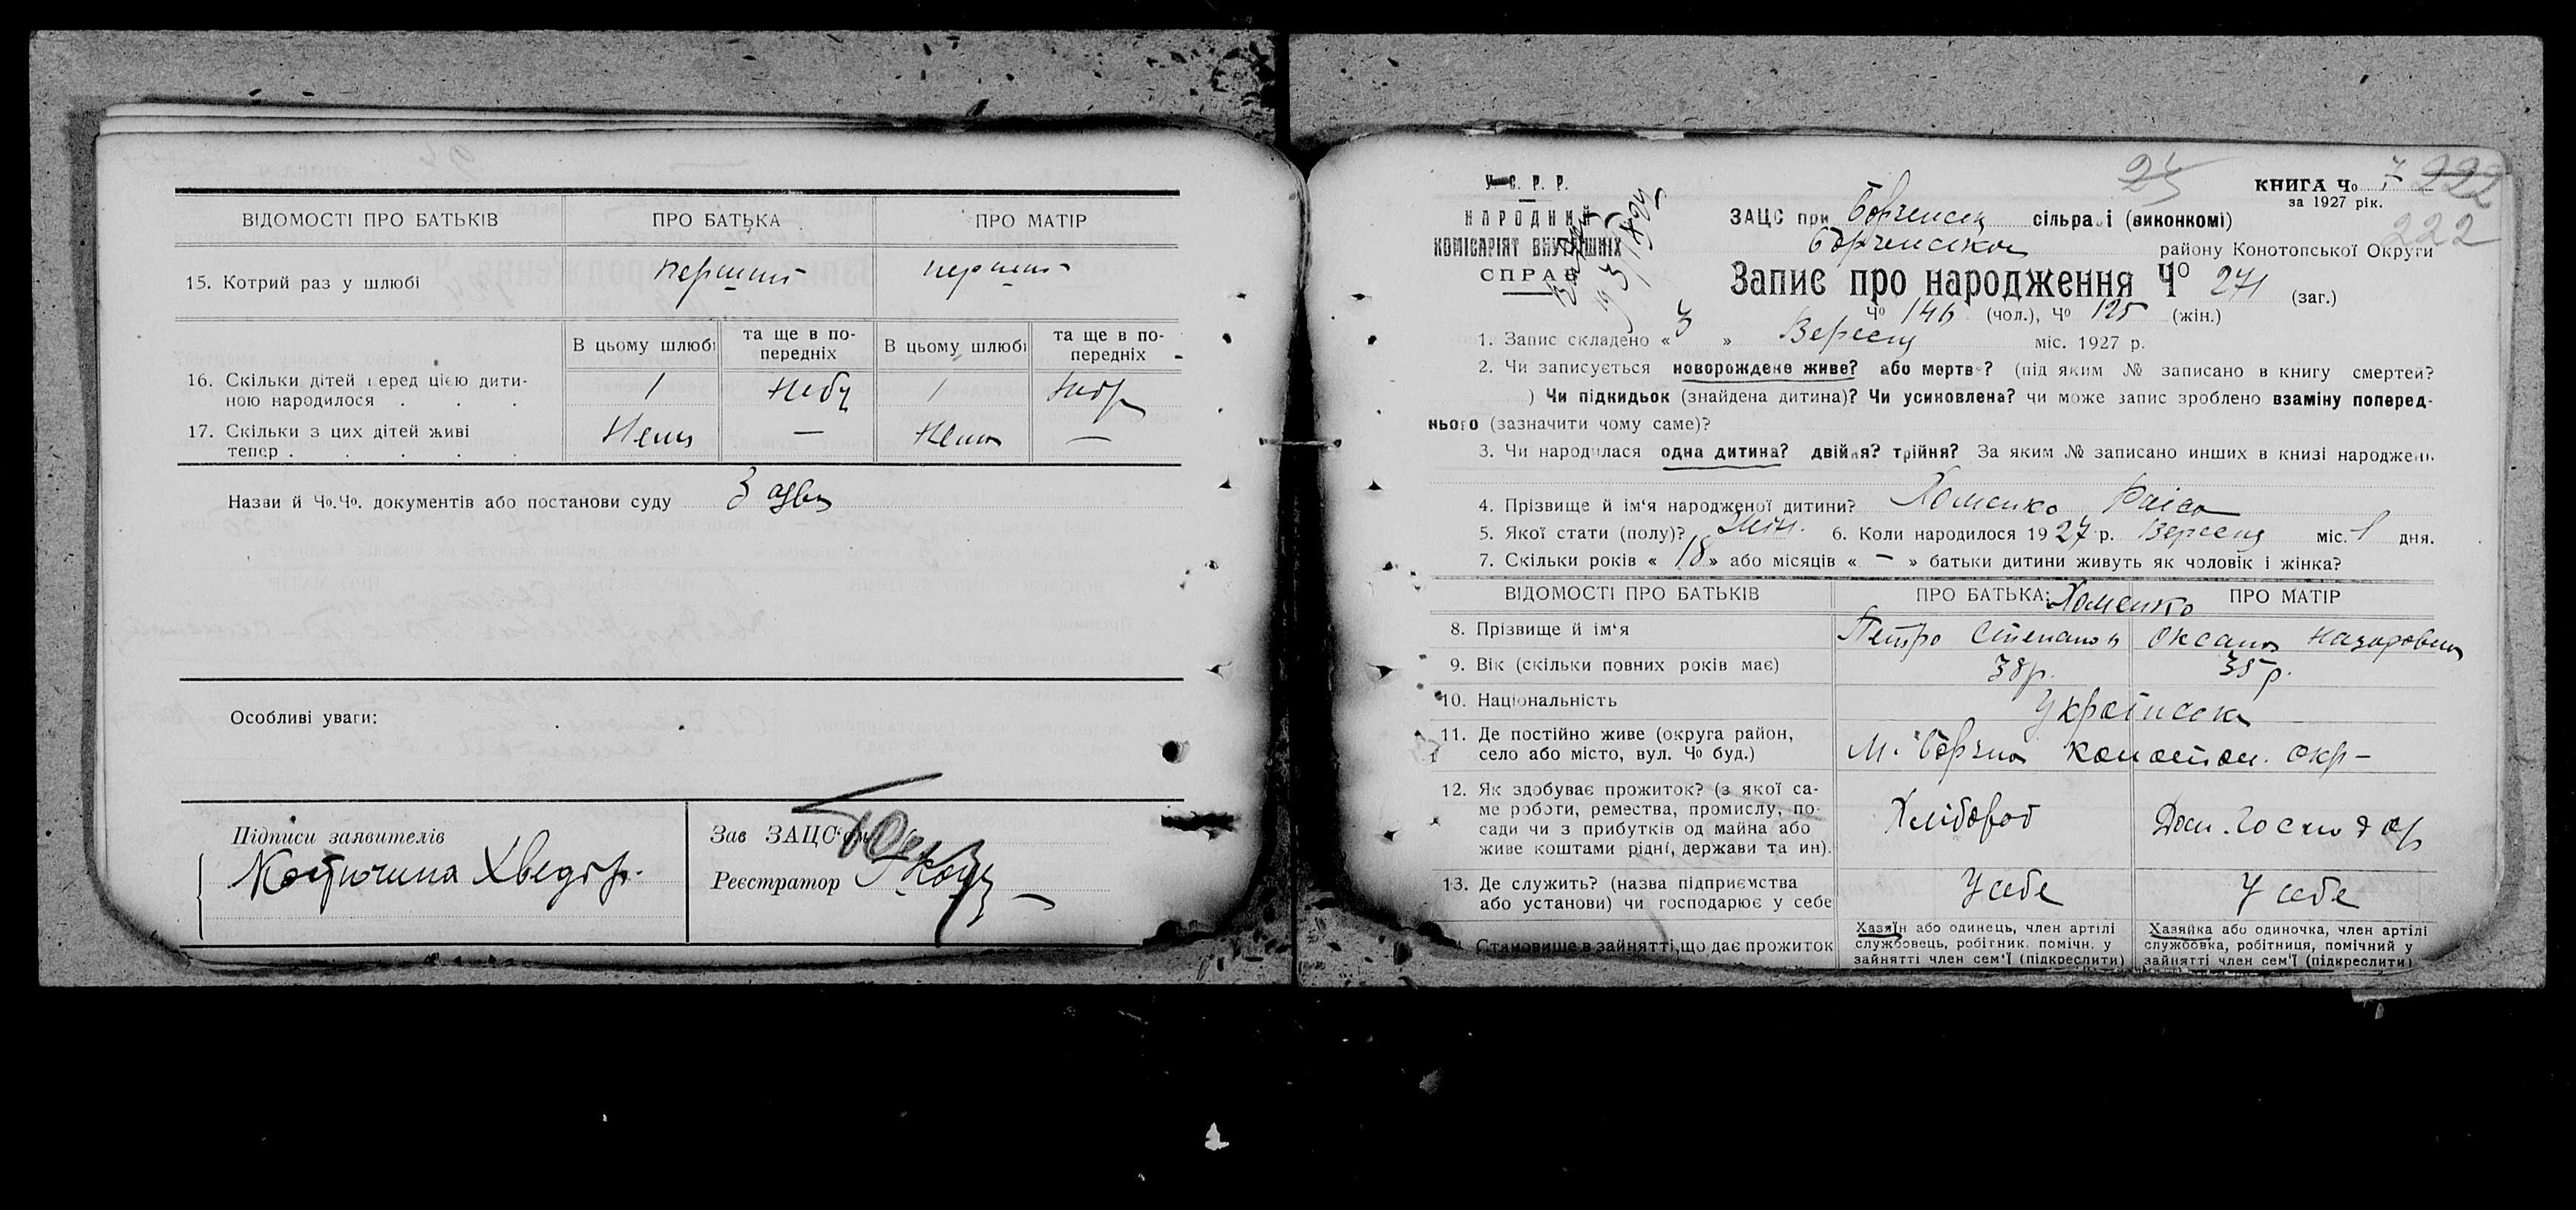 ВІДОМОСТІ ПРО БАТЬКІВ ПРО БАТЬКА ПРО МАТІР
15. Котрий раз у шлюбі перший перший
В цьому шлюбі та ще в попередніх В цьому шлюбі та ще в попередніх
16. Скільки дітей перед цією дити-
ною народилося . . . 1 1
17. Скільки з цих дітей живі
тепер . . . . . Нема — Нема —
Назви й Чо.Чо. документів або постанови суду З
Особливі уваги:
Підписи заявителів
Хведір.
Зав ЗАЦС'ом
Реєстратор
25
КНИГА Чо 7 222
за 1927 рік.
222
У. С. Р. Р.
НАРОДНИЙ
КОМІСАРІЯТ ВНУТРІШНІХ
СПРАВ
ЗАЦС при Борзенськ сільраді (виконкомі)
Борзенського району Конотопської Округи
Запис про народження Чо 271 (заг.)
Чо 146 (чол.), Чо 125 (жін.)
1. Запис складено « 3 » Вересня міс. 1927 р.
2. Чи записується новорождене живе? або мертве? (під яким № записано в книгу смертей?
) Чи підкидьок (знайдена дитина)? Чи усиновлена? чи може запис зроблено взаміну поперед-
нього (зазначити чому саме)?
3. Чи народилася одна дитина? двійня? трійня? За яким № записано инших в книзі народжень
4. Прізвище й ім'я народженої дитини? Хоменко Раїса
5. Якої стати (полу)? жін. 6. Коли народилося 1927 р. Вересня міс. 1 дня.
7. Скільки років « 18 » або місяців « — » батьки дитини живуть як чоловік і жінка?
ВІДОМОСТІ ПРО БАТЬКІВ ПРО БАТЬКА: Хоменко ПРО МАТІР
8. Прізвище й ім'я Петро Степанов Оксана Назаровна
9. Вік (скільки повних років має) 38р. 35р.
10. Національність Українська
11. Де постійно живе (округа район,
село або місто, вул. Чо буд.) М. Борзна Конотоп. окр-
12. Як здобуває прожиток? (з якої са-
ме роботи, ремества, промислу, по-
сади чи з прибутків од майна або
живе коштами рідні, держави та ин). Хлібороб Дом. Господар
13. Де служить? (назва підприємства
або установи) чи господарює у себе У себе У себе
Становище в зайнятті, що дає прожиток
Хазяїн або одинець, член артілі
службовець, робітник. помічн. у
зайнятті член сем'ї (підкреслити)
Хазяйка або одиночка, член артілі
службовка, робітниця, помічний у
зайнятті член сем'ї (підкреслити)